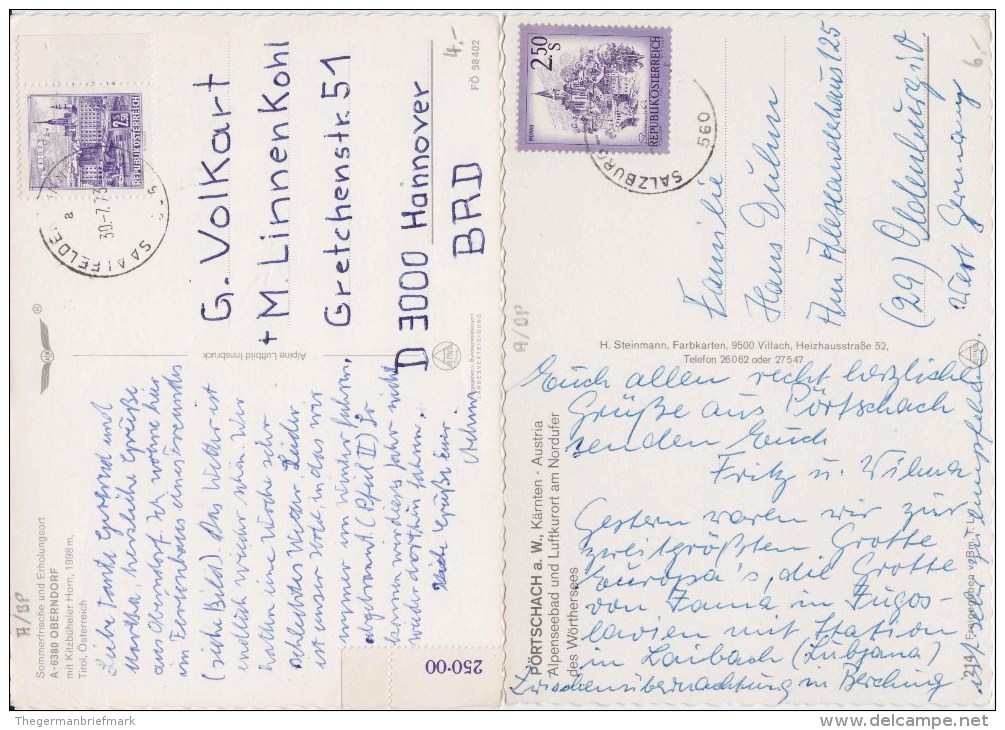 Sommerfrische und Erholungsort
A-6380 OBERNDORF
mit Kitzbüheler Horn, 1998 m,
Tirol, Österreich
A/BP
Liebe Tante Gertrud und
Martha, herzliche Grüße
aus Oberndorf. Ich wohne hier
im Ferienhaus eines Freundes
(siehe Bild). Das Wetter ist
endlich wieder schön. Wir
hatten eine Woche sehr
schlechtes Wetter. Leider
ist unser Hotel, in das wir
immer im Winter fuhren,
abgebrannt (Pfeil II). So
können wir dieses Jahr nicht
wieder dorthin fahren.
Viele Grüße Euer
Alpine Luftbild Innsbruck
ALPINE
LANDESVERTEIDIGUNG
FÖ 58402
4.-
2 S
50
REPUBLIK ÖSTERREICH
SAALFELDEN
30.-7.73
a
G. Volkart
+ M. Linnenkohl
Gretchenstr. 51
D 3000 Hannover
BRD
250·00
Thegermanbriefmark
PÖRTSCHACH a. W., Kärnten - Austria
Alpenseebad und Luftkurort am Nordufer
des Wörthersees
A/BP
H. Steinmann, Farbkarten, 9500 Villach, Heizhausstraße 52,
Telefon 26062 oder 27547
Euch allen recht herzliche
Grüße aus Pörtschach
senden Euch
Fritz u. Wilma
Gestern waren wir zur
zweitgrößten Grotte
Europa's, die Grotte
von Zama in Jugos-
lavien mit Station
in Laibach (Lubjana)
Zwischenübernachtung in Berching
2.50
S
REPUBLIK ÖSTERREICH
SALZBURG
560
6.-
Familie
Hans Duhm
Am Pfleseauerhaus 125
(29) Oldenburg i. O
West Germany
www.delcampe.net